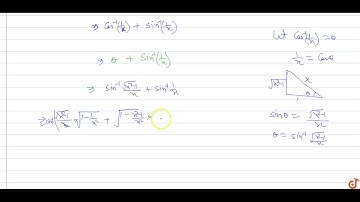 ⇒ Cos⁻¹(1/x) + Sin⁻¹(1/x)
⇒ θ + Sin⁻¹(1/x)
⇒ Sin⁻¹ √(x²-1)/x + Sin⁻¹ 1/x
√(x²-1)/x √(1-1/x²) + √(1-(x²-1)/x²) ×
Let Cos⁻¹(1/x) = θ
1/x = Cosθ
√(x²-1) x
θ
1
sinθ = √(x²-1)/x
θ = sin⁻¹ √(x²-1)/x